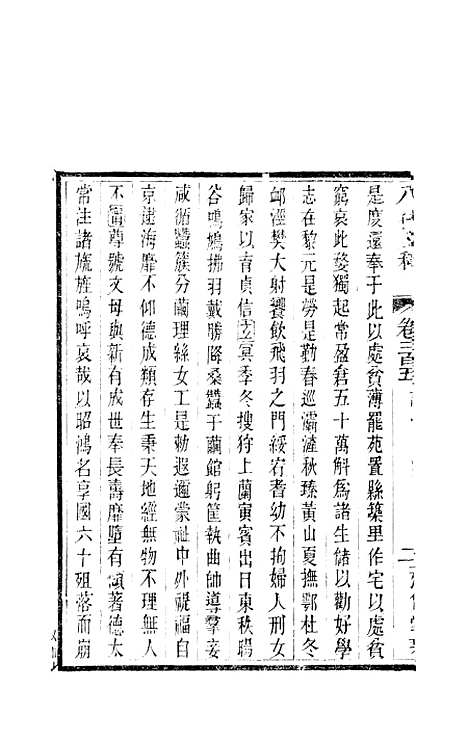 卷三百五
是度還奉于此以處貧薄罷苑置縣築里作宅以處貧
窮哀此嫠獨起常盈倉五十萬斛爲諸生儲以勸好學
志在黎元是勞是勤春巡灞滻秋臻黃山夏撫鄠杜冬
卹涇樊大射饗飲飛羽之門綏宥耆幼不拘婦人刑女
歸家以育貞信立冥季冬搜狩上蘭寅賓出日東秩暘
谷鳴鳩拂羽戴勝降桑蠶于繭館躬筐執曲帥導羣妾
咸循蠶簇分繭理絲女工是勅遐邇蒙祉中外禔福自
京逮海靡不仰德成類存生秉天地經無物不理無人
不甯尊號文母與新有成世奉長壽靡墮有傾著德太
常注諸旒旌嗚呼哀哉以昭鴻名享國六十殂落而崩